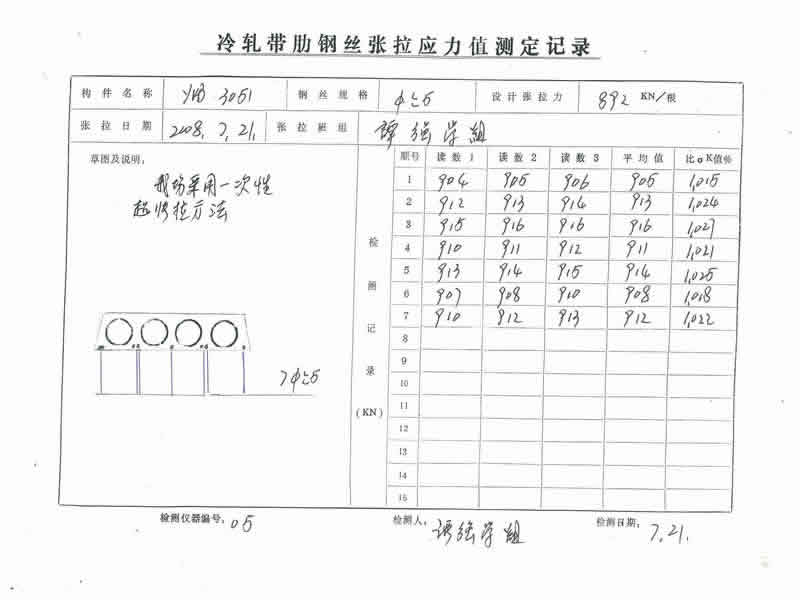 冷轧带肋钢丝张拉应力值测定记录
构件名称 YKB 3051 钢丝规格 设计张拉力 892 KN/根
张拉日期 2008.7.21. 张拉班组 谭强华组
草图及说明：
我场采用一次性
超张拉方法
检测记录(KN)
顺号 读数1 读数2 读数3 平均值 比σK值%
1 904 905 906 905 1.015
2 912 913 914 913 1.024
3 915 916 916 916 1.027
4 910 911 912 911 1.021
5 913 914 915 914 1.025
6 907 908 910 908 1.018
7 910 912 913 912 1.022
8
9
10
11
12
13
14
15
检测仪器编号：05 检测人： 检测日期： 7.21.